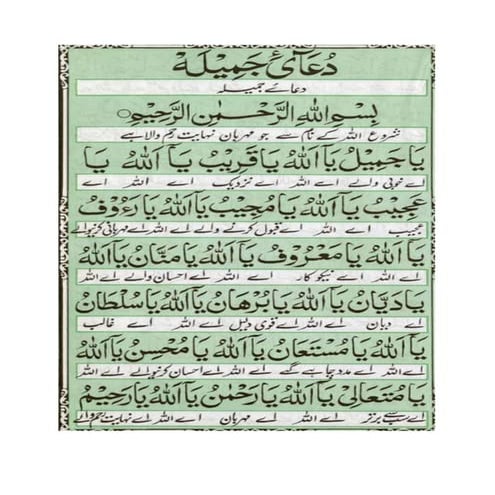 دُعَآئے جَمِیْلَہ
دعائے جمیلہ
بِسْمِ اللهِ الرَّحْمٰنِ الرَّحِیْمِ
شروع اللہ کے نام سے جو مہربان نہایت رحم والا ہے
یَا جَمِیْلُ یَآ اَللهُ یَا قَرِیْبُ یَآ اَللهُ یَا
اے خوبی والے اے اللہ اے نزدیک اے اللہ اے
عَجِیْبُ یَآ اَللهُ یَا مُجِیْبُ یَآ اَللهُ یَا رَءُوْفُ
عجیب اے اللہ اے قبول کرنے والے اے اللہ اے مہربانی کرنیوالے
یَآ اَللهُ یَا مَعْرُوْفُ یَآ اَللهُ یَا مَنَّانُ یَآ اَللهُ
اے اللہ اے نیکوکار اے اللہ اے احسان والے اے اللہ
یَا دَیَّانُ یَآ اَللهُ یَا بُرْهَانُ یَآ اَللهُ یَا سُلْطَانُ
اے دیان اے اللہ اے قوی دلیل اے اللہ اے غالب
یَآ اَللهُ یَا مُسْتَعَانُ یَآ اَللهُ یَا مُحْسِنُ یَآ اَللهُ
اے اللہ اے مدد چاہے گئے اے اللہ اے احسان کرنیوالے اے اللہ
یَا مُتَعَالِیْ یَآ اَللهُ یَا رَحْمٰنُ یَآ اَللهُ یَا رَحِیْمُ
اے سب سے برتر اے اللہ اے مہربان اے اللہ اے نہایت رحم والے